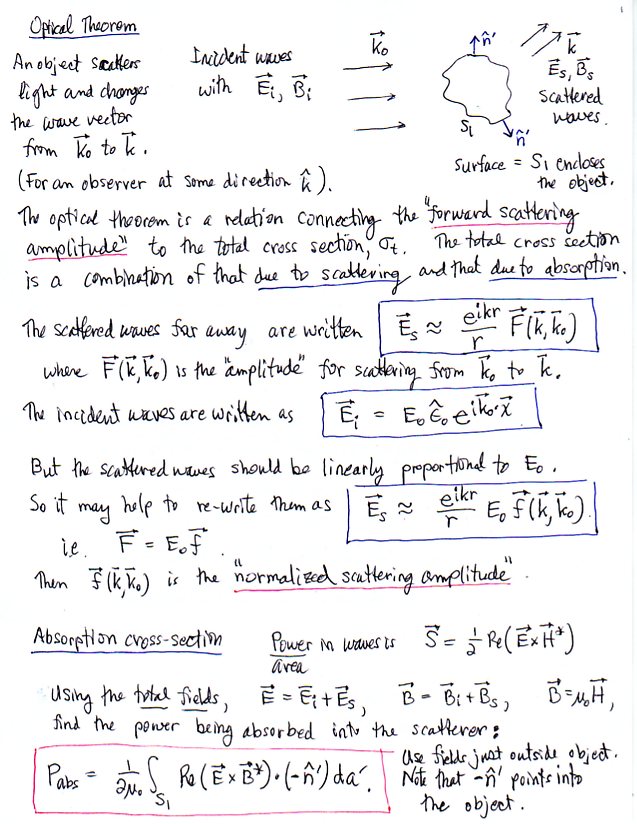 Optical Theorem
An object scatters
light and changes
the wave vector
from k⃗₀ to k⃗.
(For an observer at some direction k̂).
Incident waves
with E⃗ᵢ, B⃗ᵢ
k⃗₀
n̂′
S₁
n̂′
k⃗
E⃗ₛ, B⃗ₛ
scattered
waves.
surface = S₁ encloses
the object.
The optical theorem is a relation connecting the "forward scattering
amplitude" to the total cross section, σₜ. The total cross section
is a combination of that due to scattering and that due to absorption.
The scattered waves far away are written E⃗ₛ ≈ e^{ikr}/r F⃗(k⃗,k⃗₀)
where F⃗(k⃗,k⃗₀) is the "amplitude" for scattering from k⃗₀ to k⃗.
The incident waves are written as E⃗ᵢ = E₀ ε̂₀ e^{ik⃗₀·x⃗}
But the scattered waves should be linearly proportional to E₀.
So it may help to re-write them as E⃗ₛ ≈ e^{ikr}/r E₀ f⃗(k⃗,k⃗₀).
i.e. F⃗ = E₀f⃗.
Then f⃗(k⃗,k⃗₀) is the "normalized scattering amplitude".
Absorption cross-section Power/area in waves is S⃗ = ½ Re(E⃗×H⃗*)
Using the total fields, E⃗ = E⃗ᵢ+E⃗ₛ, B⃗ = B⃗ᵢ+B⃗ₛ, B⃗=μ₀H⃗,
find the power being absorbed into the scatterer:
P_abs = 1/2μ₀ ∫_{S₁} Re(E⃗×B⃗*)·(-n̂′)da′.
Use fields just outside object.
Note that -n̂′ points into
the object.